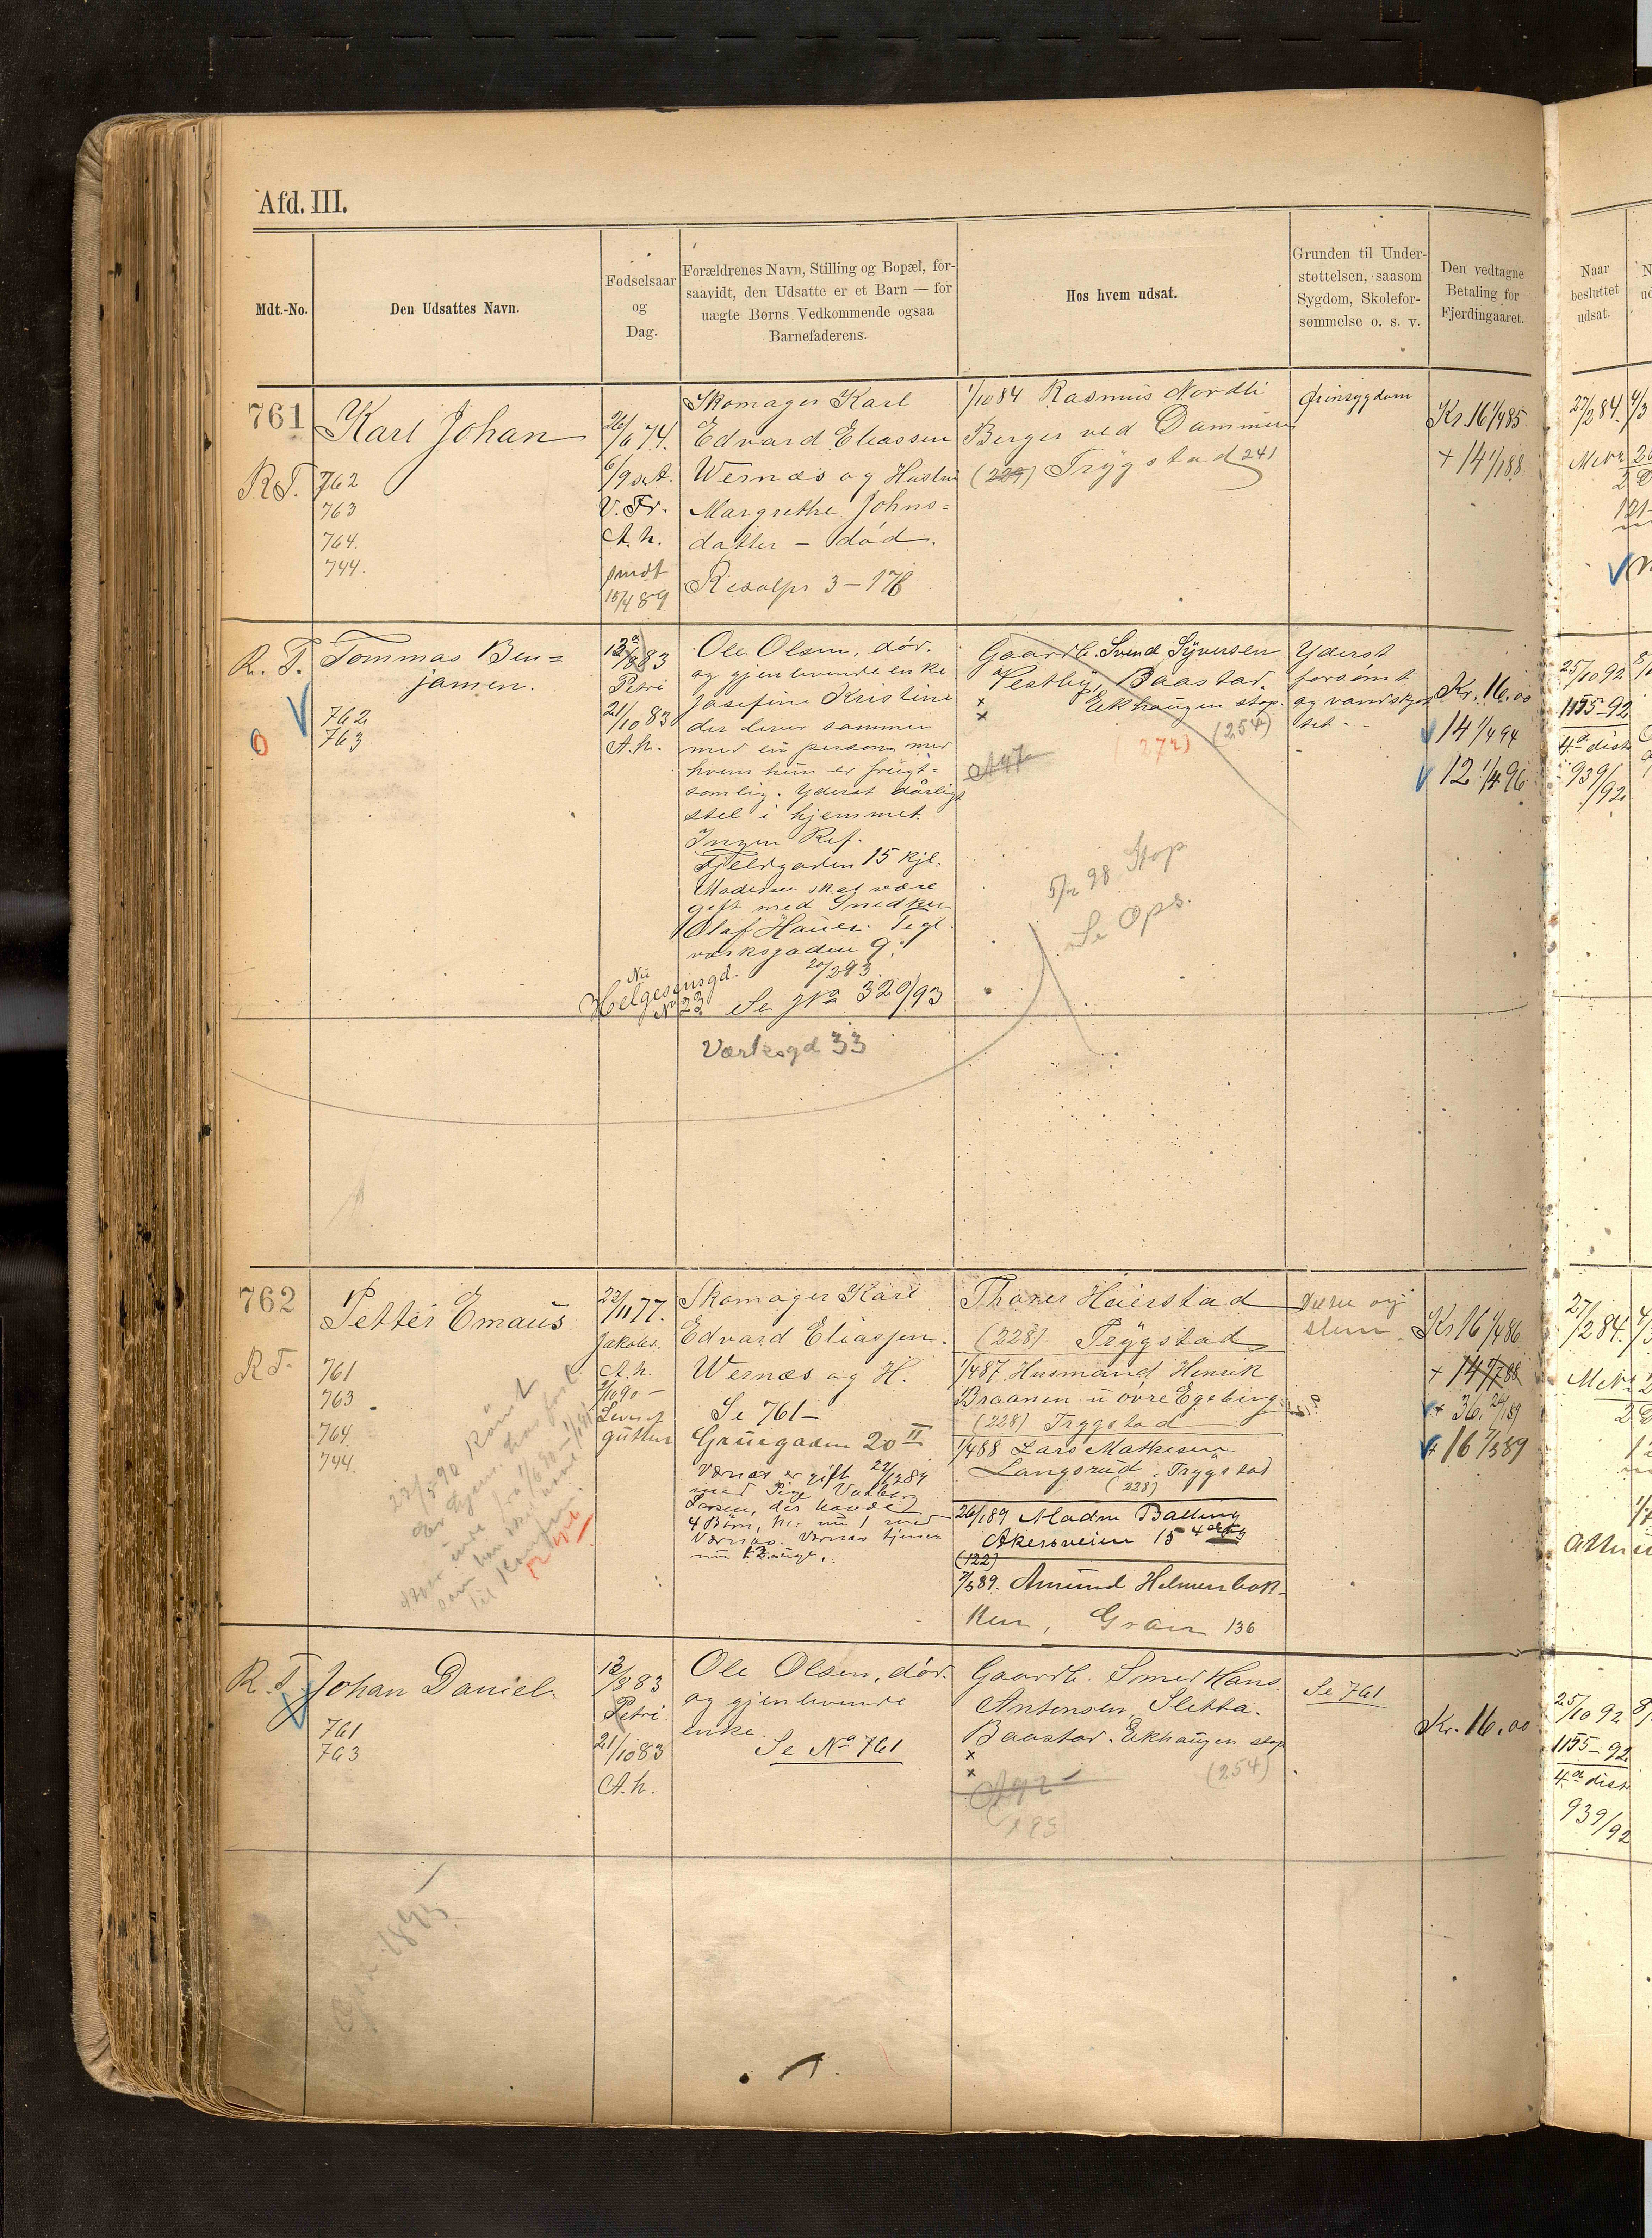 Afd. III.
Mdt.-No.
Den Udsattes Navn.
Fødselsaar
og
Dag.
Forældrenes Navn, Stilling og Bopæl, for-
saavidt, den Udsatte er et Barn — for
uægte Børns Vedkommende ogsaa
Barnefaderens.
Hos hvem udsat.
Grunden til Under-
støttelsen, saasom
Sygdom, Skolefor-
sømmelse o. s. v.
Den vedtagne
Betaling for
Fjerdingaaret.
Naar
besluttet
udsat.
761
R.T.
Karl Johan
762
763
764.
744.
26/6 74.
6/9
V. Fr.
A. h.
15/4 89
Skomager Karl
Edvard Eliassen
Wernæs og Hustru
Margrethe Johns=
datter – død.
3–178
1/10 84 Rasmus Nordli
Berger ved Dammen
(229) Trygstad 241
Øiensygdom
Kr. 16 1/4 85.
+ 14 1/1 88
27/2 84.
R. T.
Tommas Ben=
jamen.
762
763
0
13/8 83
Petri
21/10 83
A. h.
Ole Olsen, død.
og gjenlevende enke
Josefine Kristine
der lever sammen
med en person, med
hvem hun er frugt=
somlig. Yderst dårligt
stel i hjemmet.
Ingen Ref.
Fjeldgaden 15 Kjl.
Moderen skal være
gift med Snedker
Olaf Hauer. Tegl
værksgaden 9.
20/2 93.
Nu
Helgesensgd.
No 23
Se No 320/93
Værksgd 33
Gaardb. Svend Syversen
Vestby, Baastad.
Ekhaugen stop.
x
x
(254)
(272)
5/12 98 Stop
Se Ops.
Yderst
forsømt
og vandskjøt
tet –
Kr. 16.00
14 1/4 94
12 1/4 96
25/10 92
1155–92
4de dist
939/
/92
762
R T.
Petter Emaus
761
763
764.
744.
22/5 90
22/11 77.
Jakobs.
A. h.
Skomager Karl
Edvard Eliassen
Wernæs og H.
Se 761 –
Grüegaden 20 II
Værnæs er gift 22/12 89
med Pige Valborg
Larsen, der havde
4 Børn, har nu 1 med
Værnæs. Værnæs tjener
Thorer Heierstad
(228) Trygstad
1/4 87 Husmand Henrik
Braanen u øvre Egeberg
(228) Trygstad
1/4 88 Lars Mathisen
Langsrud. Trygstad
(228)
26/1 89 Madm Balling
Akersveien 15
(122)
7/3 89. Amund Helmenbak-
ken, Gran 136
Kr 16 1/4 86
+ 14 1/1 88
+ 36. 26/1 89
+ 16 7/3 89
27/2 84.
R. T.
Johan Daniel.
761
763
13/8 83
Petri
21/10 83
A. h.
Ole Olsen, død.
og gjenlevende
enke.
Se No 761
Gaardb. Smed Hans
Antonsen, Sletta.
Baastad. Ekhaugen stop
x
x
(254)
195
Se 761
Kr. 16.00
25/10 92
1155–92
4de dist
939/92